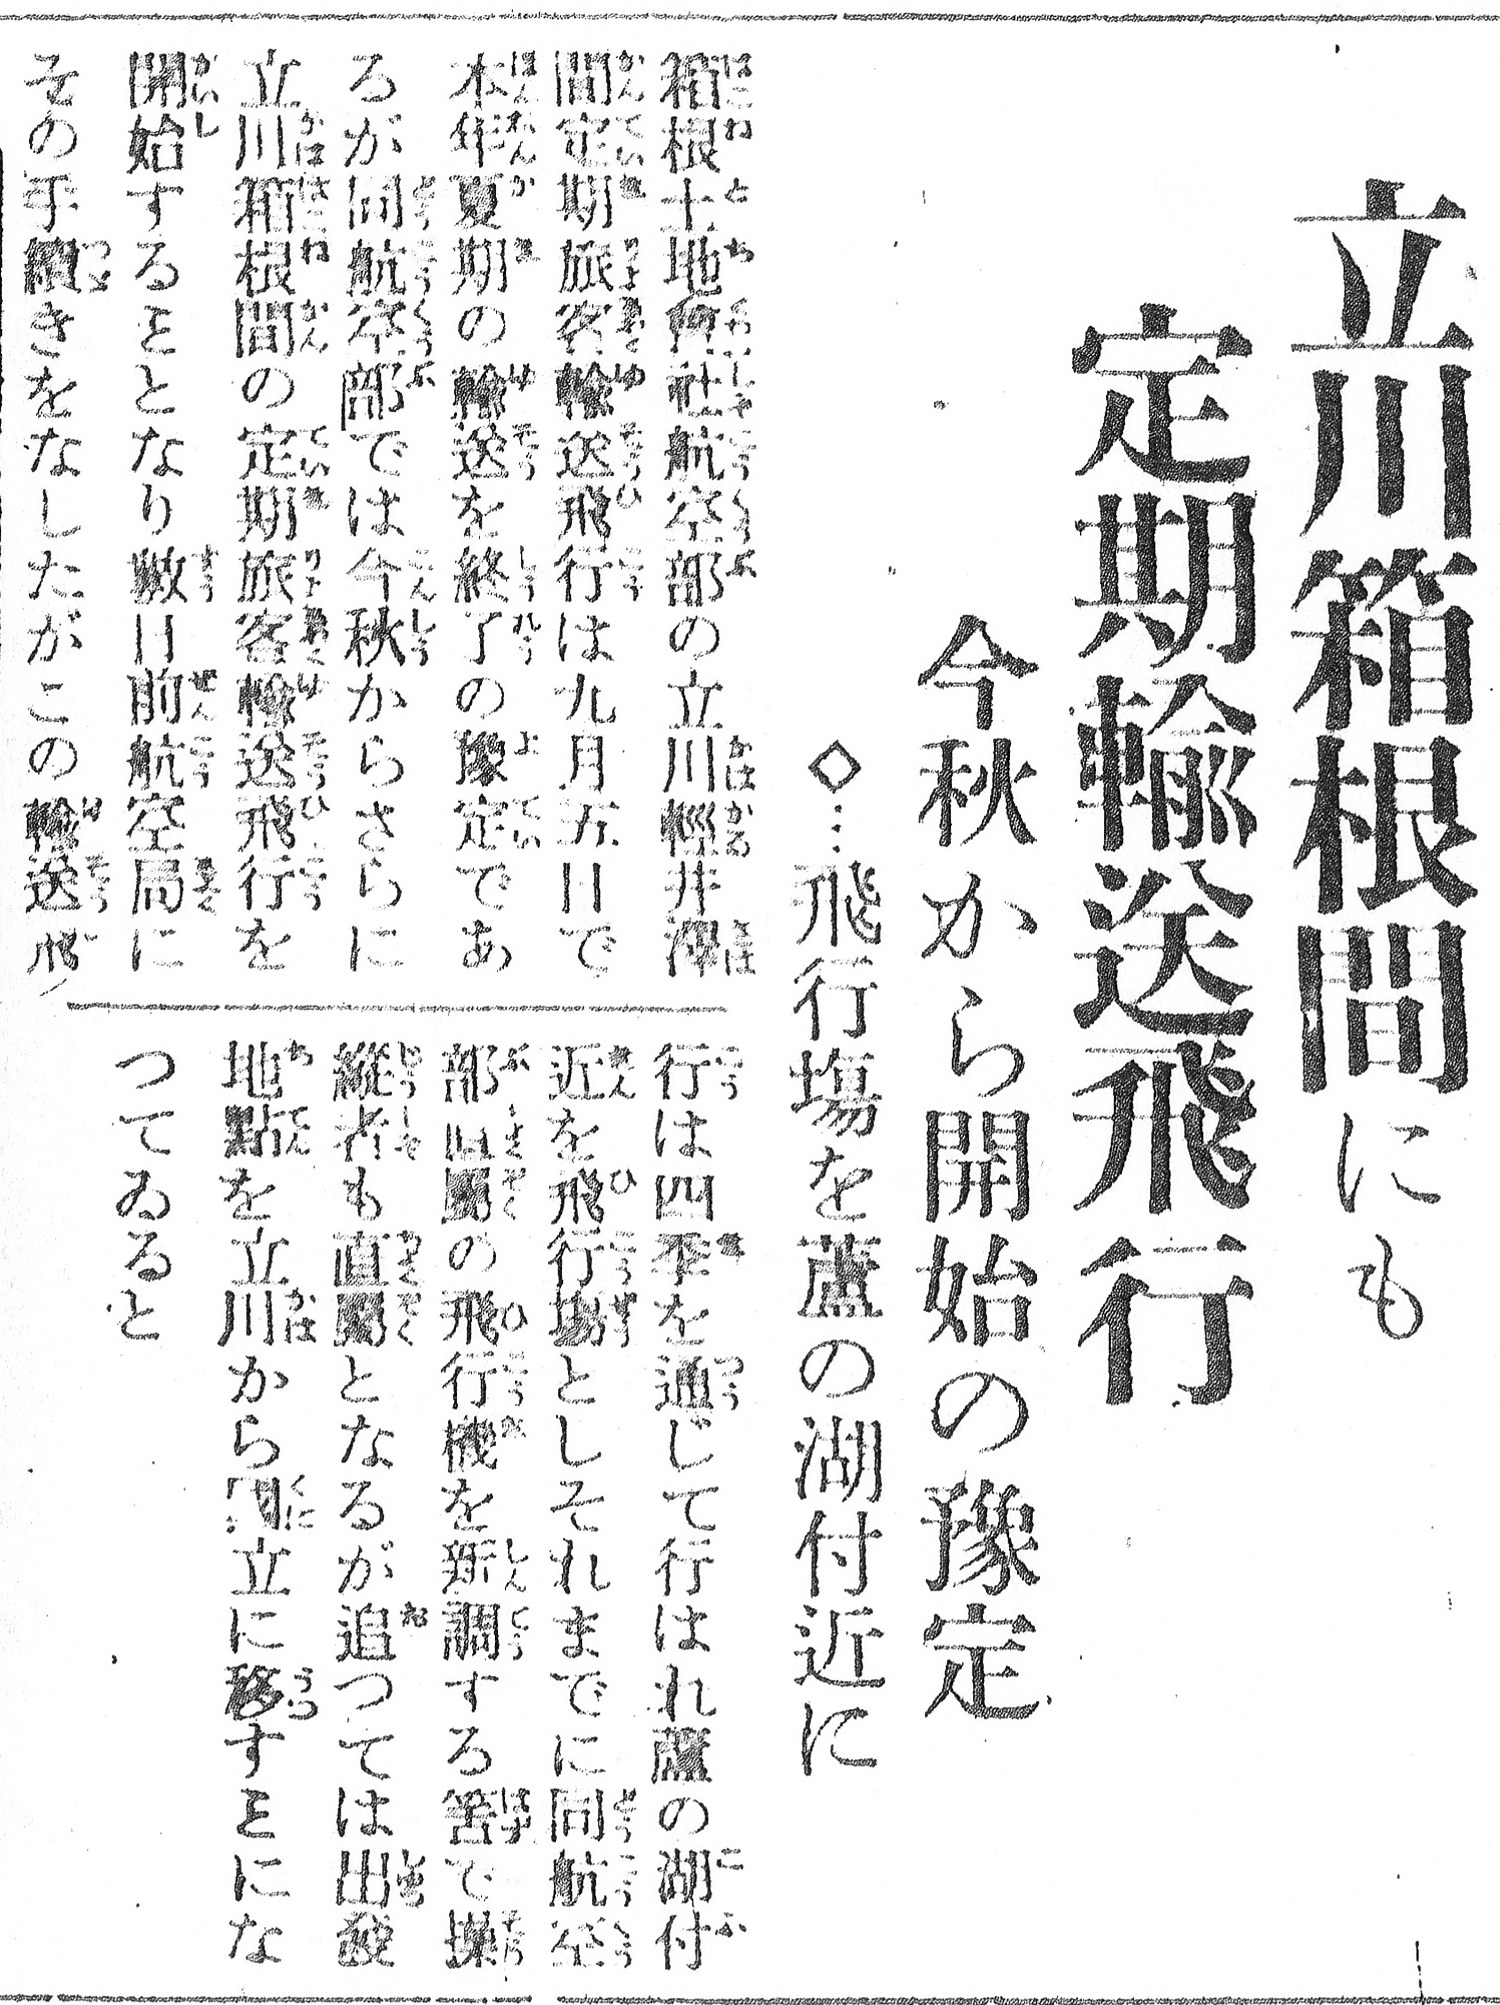 立川箱根間にも
定期輸送飛行
今秋から開始の豫定
◇…飛行場を蘆の湖付近に
箱根土地會社航空部の立川輕井澤
間定期旅客輸送飛行は九月五日で
本年夏期の輸送を終了の豫定であ
るが同航空部では今秋からさらに
立川箱根間の定期旅客輸送飛行を
開始することとなり數日前航空局に
その手續きをなしたがこの輸送飛
行は四季を通じて行はれ蘆の湖付
近を飛行場としそれまでに同航空
部屬の飛行機を新調する筈で操
縱者も直屬となるが追つては出發
地點を立川から國立に移すことにな
つてゐると